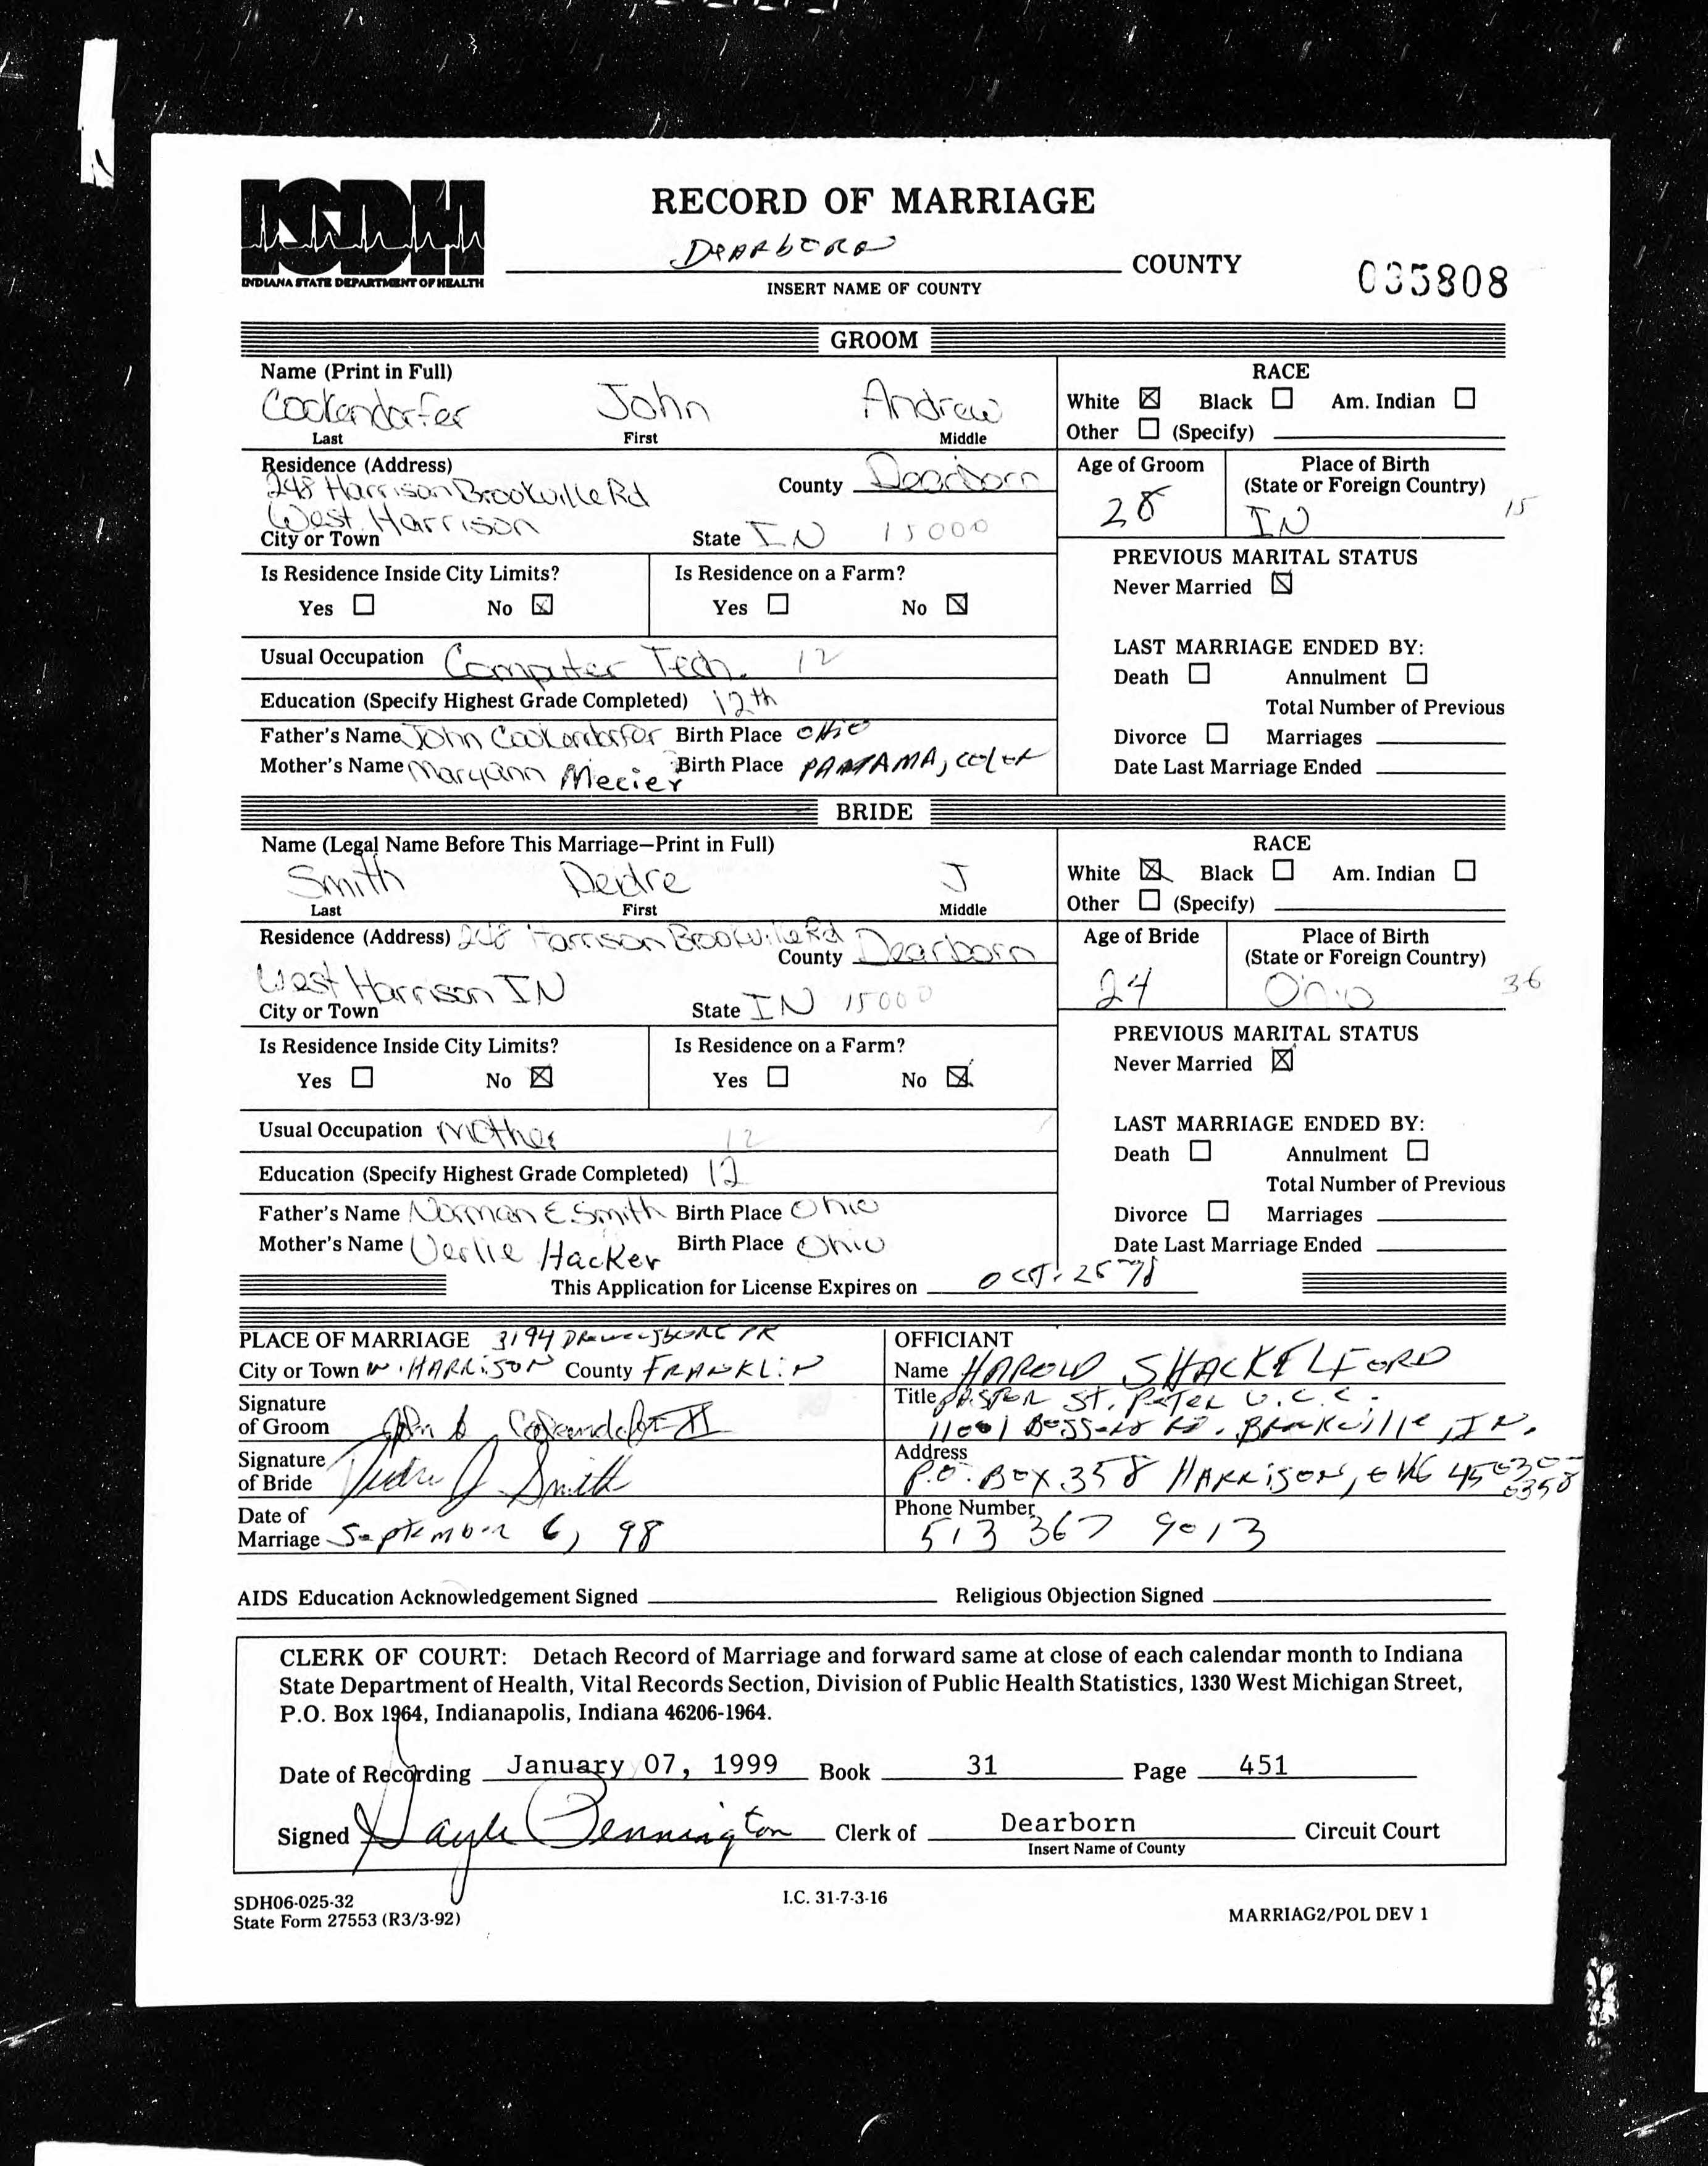 ISDH
INDIANA STATE DEPARTMENT OF HEALTH
RECORD OF MARRIAGE
Dearborn COUNTY
INSERT NAME OF COUNTY
035808
GROOM
Name (Print in Full)
Cookendorfer John Andrew
Last First Middle
RACE
White ☒ Black ☐ Am. Indian ☐
Other ☐ (Specify)
Residence (Address)
248 Harrison Brookville Rd
County Dearborn
West Harrison
City or Town State IN 15000
Age of Groom
28
Place of Birth
(State or Foreign Country)
IN 15
Is Residence Inside City Limits?
Yes ☐ No ☒
Is Residence on a Farm?
Yes ☐ No ☒
PREVIOUS MARITAL STATUS
Never Married ☒
Usual Occupation Computer Tech. 12
Education (Specify Highest Grade Completed) 12th
Father's Name John Cookendorfer Birth Place Ohio
Mother's Name Maryann Mecier Birth Place PANAMA,
LAST MARRIAGE ENDED BY:
Death ☐ Annulment ☐
Total Number of Previous
Divorce ☐ Marriages
Date Last Marriage Ended
BRIDE
Name (Legal Name Before This Marriage—Print in Full)
Smith Deidre J
Last First Middle
RACE
White ☒ Black ☐ Am. Indian ☐
Other ☐ (Specify)
Residence (Address) 248 Harrison Brookville Rd
County Dearborn
West Harrison IN
City or Town State IN 15000
Age of Bride
24
Place of Birth
(State or Foreign Country)
Ohio 36
Is Residence Inside City Limits?
Yes ☐ No ☒
Is Residence on a Farm?
Yes ☐ No ☒
PREVIOUS MARITAL STATUS
Never Married ☒
Usual Occupation Mother 12
Education (Specify Highest Grade Completed) 12
Father's Name Norman E. Smith Birth Place Ohio
Mother's Name Verlie Hacker Birth Place Ohio
LAST MARRIAGE ENDED BY:
Death ☐ Annulment ☐
Total Number of Previous
Divorce ☐ Marriages
Date Last Marriage Ended
This Application for License Expires on OCT. 25 98
PLACE OF MARRIAGE 3194
City or Town W. HARRISON County FRANKLIN
Signature
of Groom
Signature
of Bride Deidre J Smith
Date of
Marriage September 6, 98
OFFICIANT
Name HAROLD SHACKELFORD
Title PASTOR ST. PETER U.C.C.
11001 Rd. Brookville, IN.
Address
P.O. BOX 358 HARRISON, OHIO 45030-
0358
Phone Number
513 367 9013
AIDS Education Acknowledgement Signed Religious Objection Signed
CLERK OF COURT: Detach Record of Marriage and forward same at close of each calendar month to Indiana
State Department of Health, Vital Records Section, Division of Public Health Statistics, 1330 West Michigan Street,
P.O. Box 1964, Indianapolis, Indiana 46206-1964.
Date of Recording January 07, 1999 Book 31 Page 451
Signed Gayle Pennington Clerk of Dearborn Circuit Court
Insert Name of County
SDH06-025-32
State Form 27553 (R3/3-92)
I.C. 31-7-3-16
MARRIAG2/POL DEV 1